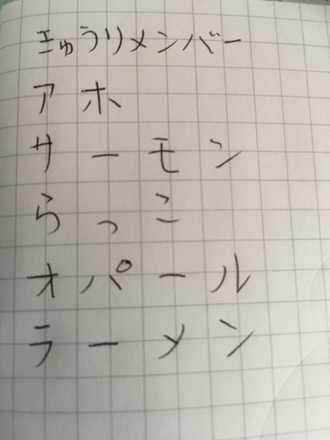 きゅうりメンバー
アホ
サーモン
らっこ
オパール
ラーメン